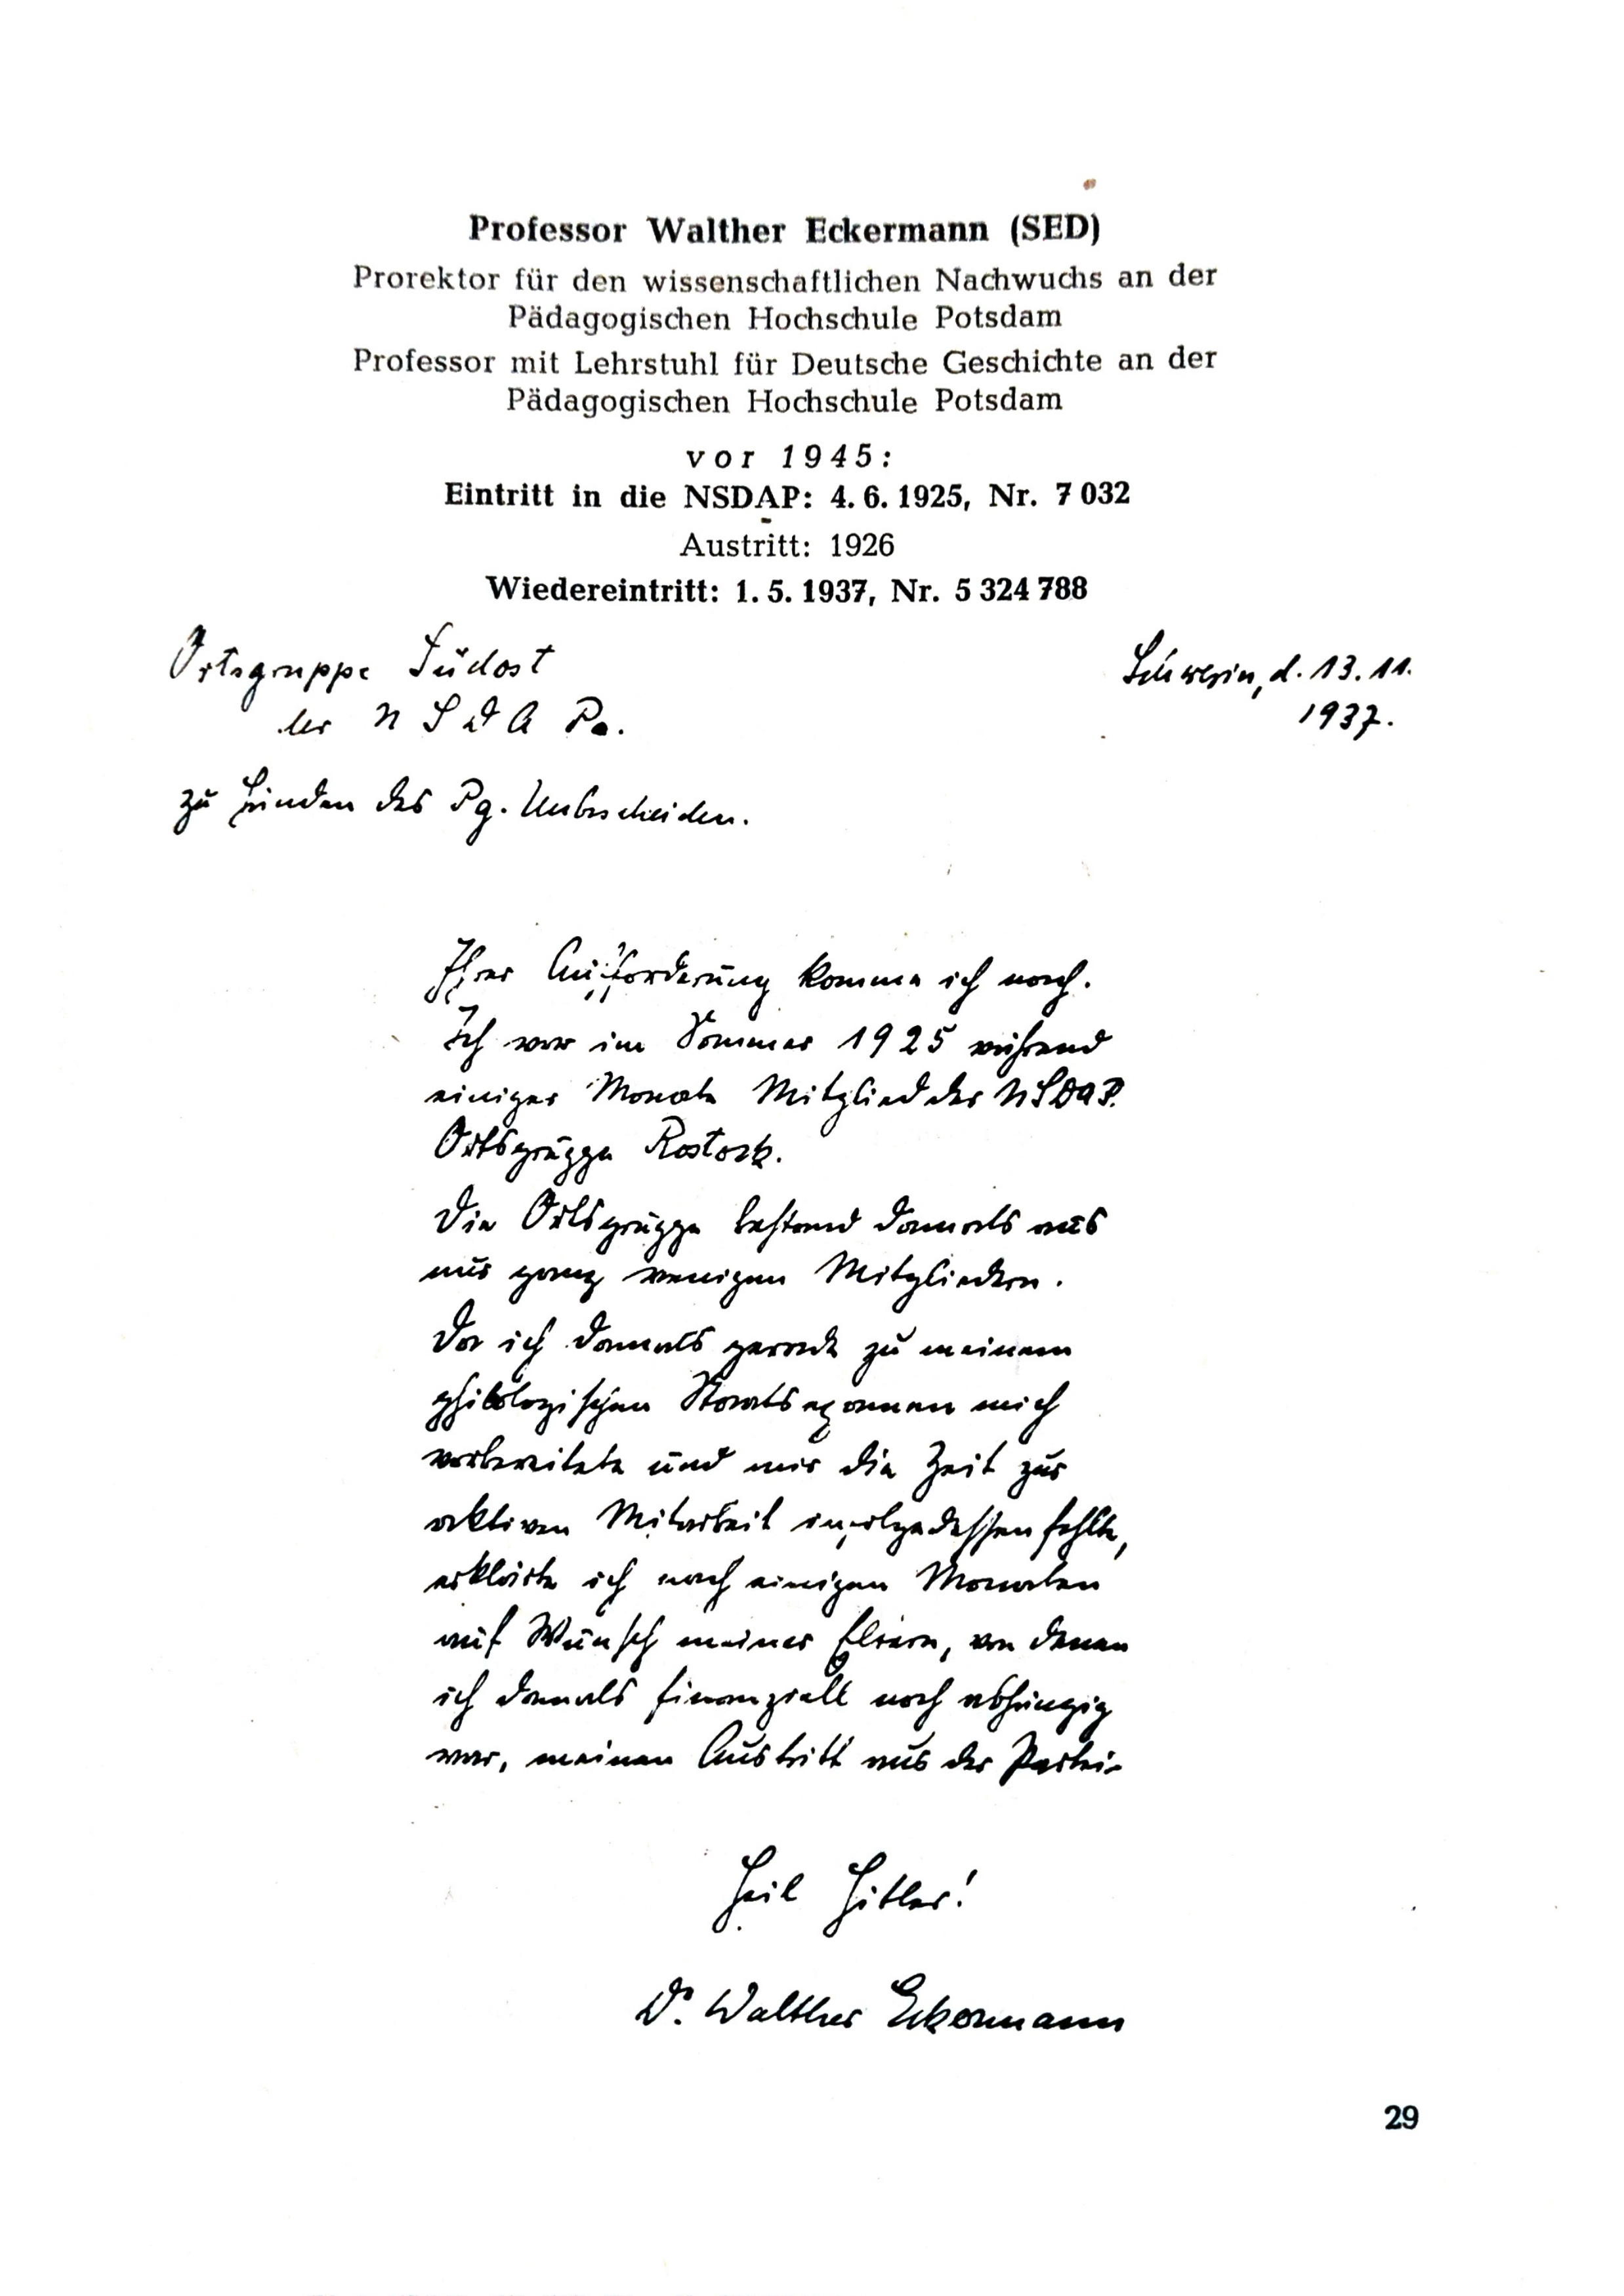 Professor Walther Eckermann (SED)
Prorektor für den wissenschaftlichen Nachwuchs an der
Pädagogischen Hochschule Potsdam
Professor mit Lehrstuhl für Deutsche Geschichte an der
Pädagogischen Hochschule Potsdam
vor 1945:
Eintritt in die NSDAP: 4. 6. 1925, Nr. 7 032
Austritt: 1926
Wiedereintritt: 1. 5. 1937, Nr. 5 324 788
Ortsgruppe Südost
der N S D A P.
Schwerin, d. 13. 11.
1937.
zu Händen des Pg.
Ihrer Aufforderung komme ich nach.
Ich war im Sommer 1925 während
einiger Monate Mitglied der NSDAP.
Ortsgruppe Rostock.
Die Ortsgruppe bestand damals aus
nur ganz wenigen Mitgliedern.
Da ich damals gerade zu meinem
philologischen Staatsexamen mich
vorbereitete und mir die Zeit zur
aktiven Mitarbeit infolgedessen fehlte,
erklärte ich nach einigen Monaten
auf Wunsch meiner Eltern, von denen
ich damals finanziell noch abhängig
war, meinen Austritt aus der Partei.
Heil Hitler!
Dr. Walther Eckermann
29